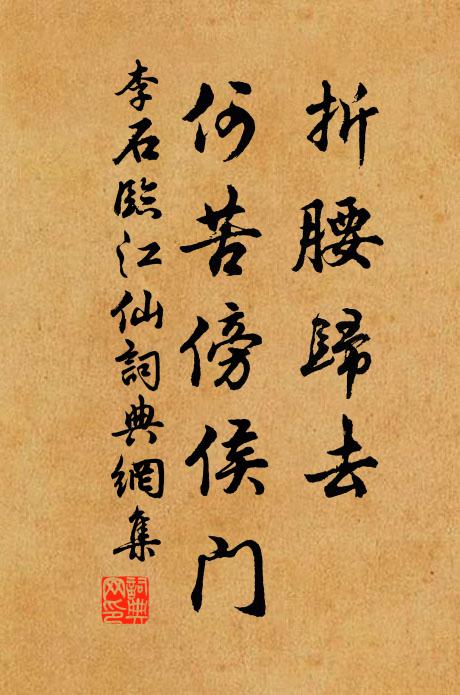 折腰歸去
何苦傍侯門
李石臨江仙詞典網集
詞典網印